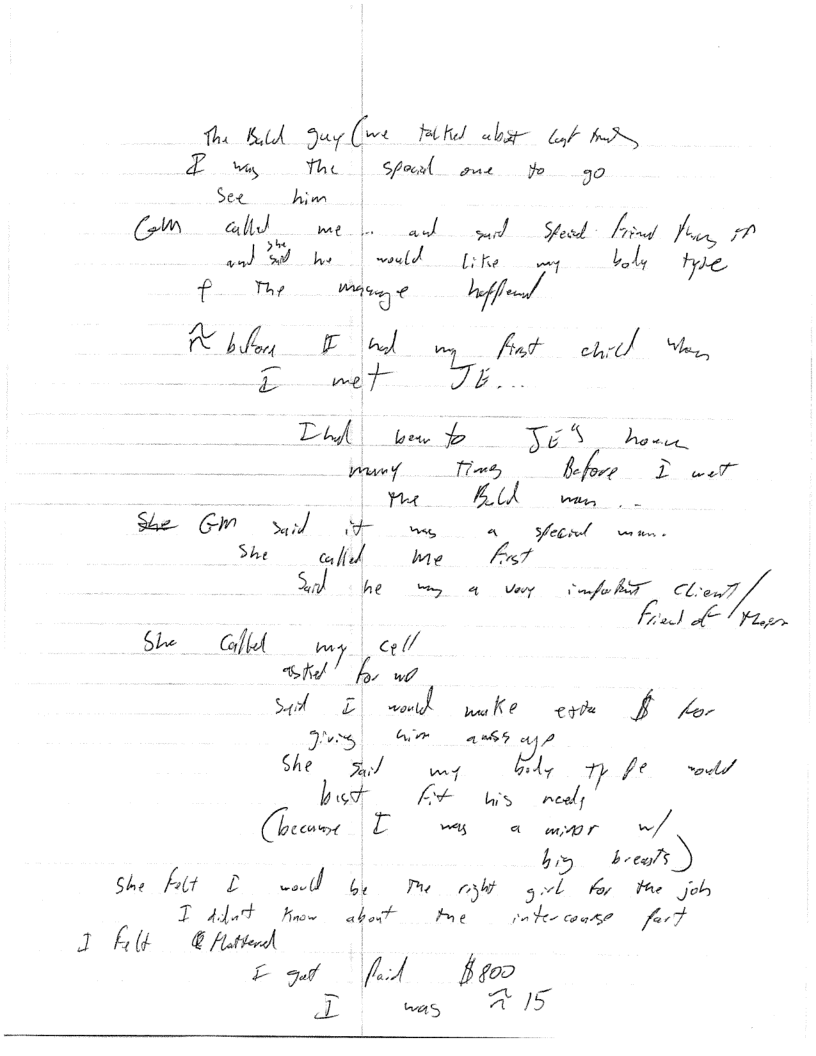 The Bald guy (we talked about last time)
I was the special one to go
see him
GM called me ... and said special friend
and she said he would like my body type
the massage happened
≈ before I had my first child when
I met JE...
I had been to JE's house
many times Before I met
the Bald man ...
She GM said it was a special man.
She called me first
Said he was a very important client /
friend of theirs
She called my cell
asked for me
Said I would make extra $ for
giving him massage
She said my body type would
best fit his needs
(because I was a minor w/
big breasts)
She felt I would be the right girl for the job
I didn't know about the intercourse part
I felt flattered
I got paid $800
I was ≈ 15